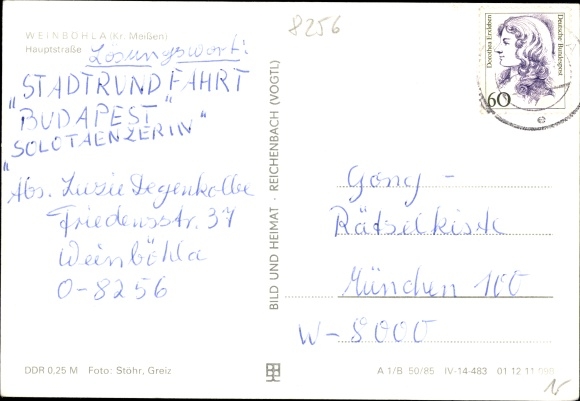 WEINBÖHLA (Kr. Meißen)
Hauptstraße
8256
Lösungswort:
"STADTRUNDFAHRT
"BUDAPEST"
SOLOTAENZERIN"
"
Abs. Luzie Degenkolbe
Friedensstr. 37
Weinböhla
O-8256
BILD UND HEIMAT · REICHENBACH (VOGTL)
Dorothea Erxleben
Deutsche Bundespost
60
e
Gong -
Rätselkiste
München 100
W-8000
DDR 0,25 M Foto: Stöhr, Greiz
A 1/B 50/85 IV-14-483 01 12 11